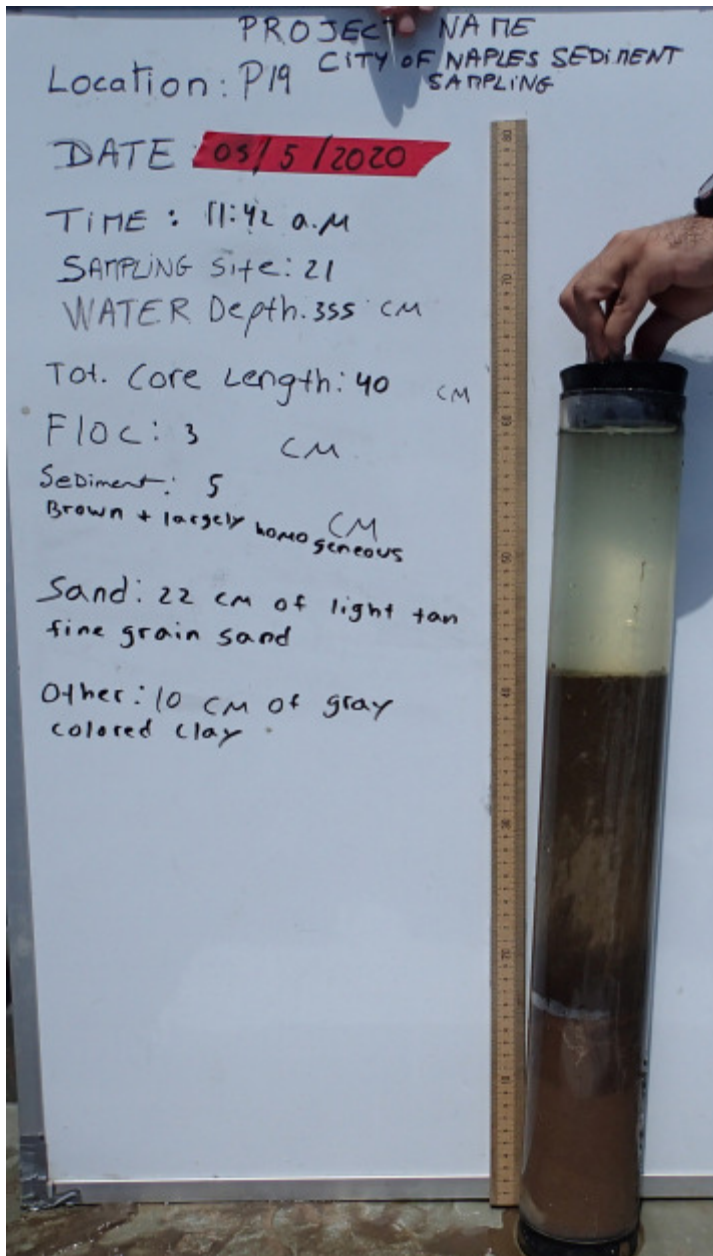 PROJECT NAME
CITY OF NAPLES SEDIMENT
SAMPLING
Location: P19
DATE 05/5/2020
TIME: 11:42 a.M
SAMPLING Site: 21
WATER Depth. 355 CM
Tot. Core Length: 40 CM
FlOC: 3 CM
SeDiment: 5 CM
Brown + largely homogeneous
Sand: 22 CM of light tan
fine grain sand
Other: 10 CM of gray
colored clay
80
70
60
50
40
30
20
10